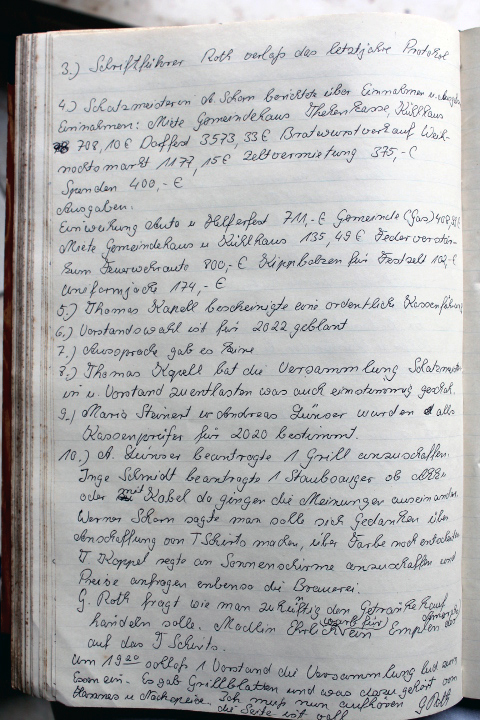 3.) Schriftführer Roth verlaß das letztjähre Protokol
4.) Schatzmeisterin A Schorn berichtete über Einnahmen u. Ausgaben
Einnahmen: Miete Gemeindehaus Thekenkasse, Kühlhaus
708,10 € Dorffest 3573,33 € Bratwurstverkauf Weih-
nachtsmarkt 1177,15 € Zeltvermietung 375,- €
Spenden 400,- €
Ausgaben.
Einweihung Auto u Helferfest 711,- € Gemeinde (Gas)
Miete Gemeindehaus u Kühlhaus 135,49 €
zum Feuerwehrauto 800,- € Kippbolzen für Festzelt 102,- €
Uniformjacke 174,- €
5.) Thomas Kapell bescheinigte eine ordentlich Kassenführung
6.) Vorstandswahl ist für 2022 geblant
7.) Aussprache gab es keine
8.) Thomas Kapell bat die Versammlung Schatzmeister
in u. Vorstand zu entlasten was auch einstimmig geschah.
9.) Mario Steinert u Andreas Zünser wurden alls
Kassenprüfer für 2020 bestimmt.
10.) A. Zünser beantragte 1 Grill anzuschaffen.
Inge Schmidt beantragte 1 Staubsauger ob
oder mit Kabel da gingen die Meinungen auseinander
Werner Schorn sagte man solle sich Gedanken über
Anschaffung von T Shirts machen, über Farbe noch entscheiden
T. Kappel regte an Sonnenschirme anzuschaffen und
Preise anfragen enbenso die Brauerei.
G. Roth fragt wie man zukünftig den Getränkekauf
handeln solle. Madlin Ehrlich warb für ein Emplem der
auf das T Shirts.
Um 19 20 schloß 1 Vorstand die Versammlung lud zum
Essen ein. Es gab Grillplatten und was dazu gehört von
Hannes u Nachspeise. Ich muß nun aufhören G Roth
die Seite ist voll